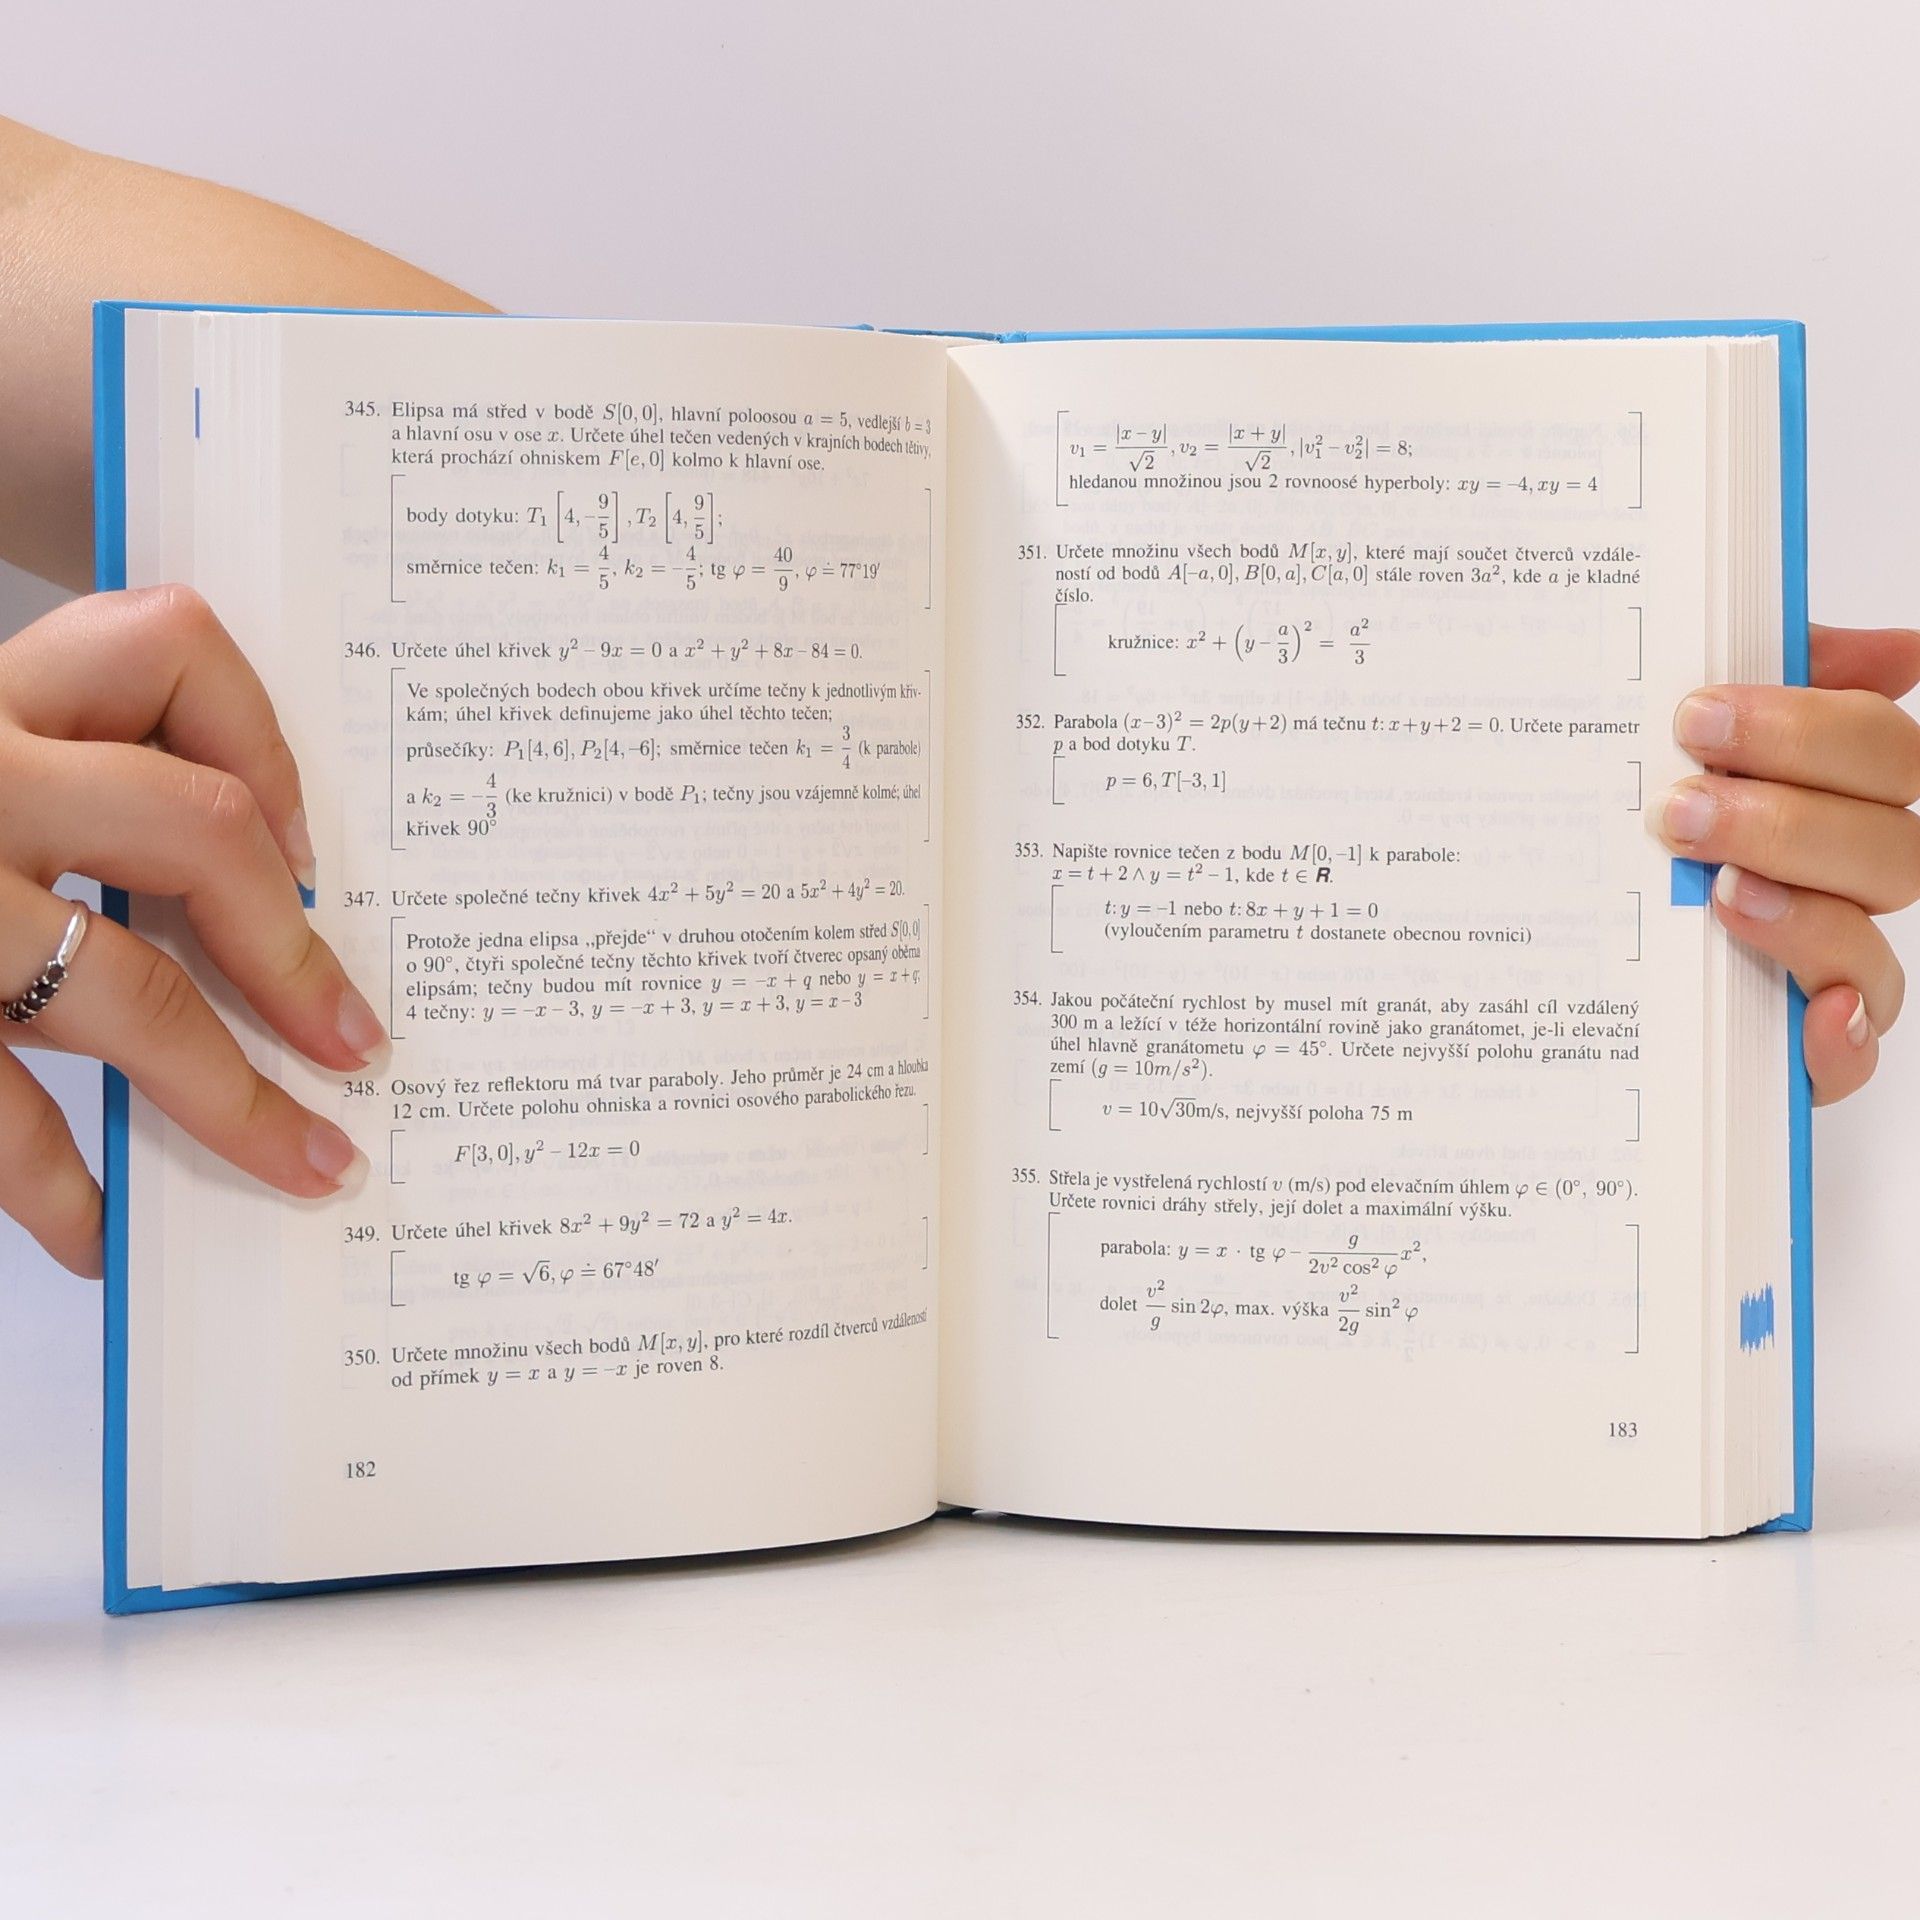 345. Elipsa má střed v bodě S[0, 0], hlavní poloosou a = 5, vedlejší b = 3
a hlavní osu v ose x. Určete úhel tečen vedených v krajních bodech tětivy,
která prochází ohniskem F[e, 0] kolmo k hlavní ose.
body dotyku: T₁ [4, −9/5], T₂ [4, 9/5];
směrnice tečen: k₁ = 4/5, k₂ = −4/5; tg φ = 40/9, φ ≐ 77°19′
346. Určete úhel křivek y² − 9x = 0 a x² + y² + 8x − 84 = 0.
Ve společných bodech obou křivek určíme tečny k jednotlivým křiv-
kám; úhel křivek definujeme jako úhel těchto tečen;
průsečíky: P₁[4, 6], P₂[4, −6]; směrnice tečen k₁ = 3/4 (k parabole)
a k₂ = −4/3 (ke kružnici) v bodě P₁; tečny jsou vzájemně kolmé; úhel
křivek 90°
347. Určete společné tečny křivek 4x² + 5y² = 20 a 5x² + 4y² = 20.
Protože jedna elipsa „přejde“ v druhou otočením kolem střed S[0, 0]
o 90°, čtyři společné tečny těchto křivek tvoří čtverec opsaný oběma
elipsám; tečny budou mít rovnice y = −x + q nebo y = x + q;
4 tečny: y = −x − 3, y = −x + 3, y = x + 3, y = x − 3
348. Osový řez reflektoru má tvar paraboly. Jeho průměr je 24 cm a hloubka
12 cm. Určete polohu ohniska a rovnici osového parabolického řezu.
F[3, 0], y² − 12x = 0
349. Určete úhel křivek 8x² + 9y² = 72 a y² = 4x.
tg φ = √6, φ ≐ 67°48′
350. Určete množinu všech bodů M[x, y], pro které rozdíl čtverců vzdáleností
od přímek y = x a y = −x je roven 8.
182
v₁ = |x − y|/√2, v₂ = |x + y|/√2, |v₁² − v₂²| = 8;
hledanou množinou jsou 2 rovnoosé hyperboly: xy = −4, xy = 4
351. Určete množinu všech bodů M[x, y], které mají součet čtverců vzdále-
ností od bodů A[−a, 0], B[0, a], C[a, 0] stále roven 3a², kde a je kladné
číslo.
kružnice: x² + (y − a/3)² = a²/3
352. Parabola (x−3)² = 2p(y+2) má tečnu t: x+y+2 = 0. Určete parametr
p a bod dotyku T.
p = 6, T[−3, 1]
353. Napište rovnice tečen z bodu M[0, −1] k parabole:
x = t + 2 ∧ y = t² − 1, kde t ∈ R.
t: y = −1 nebo t: 8x + y + 1 = 0
(vyloučením parametru t dostanete obecnou rovnici)
354. Jakou počáteční rychlost by musel mít granát, aby zasáhl cíl vzdálený
300 m a ležící v téže horizontální rovině jako granátomet, je-li elevační
úhel hlavně granátometu φ = 45°. Určete nejvyšší polohu granátu nad
zemí (g = 10m/s²).
v = 10√30m/s, nejvyšší poloha 75 m
355. Střela je vystřelená rychlostí v (m/s) pod elevačním úhlem φ ∈ (0°, 90°).
Určete rovnici dráhy střely, její dolet a maximální výšku.
parabola: y = x · tg φ − g/(2v² cos² φ) x²,
dolet v²/g sin 2φ, max. výška v²/2g sin² φ
183